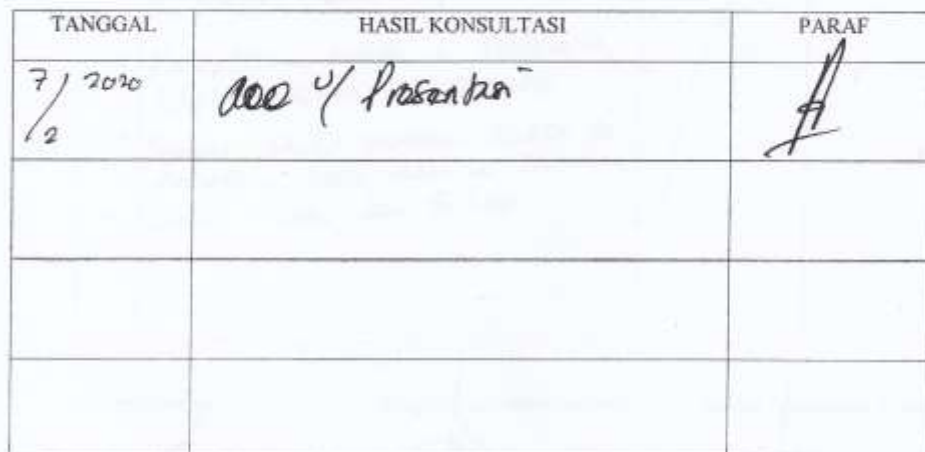 TANGGAL HASIL KONSULTASI PARAF
7/2 2020 acc u/ Presentasi